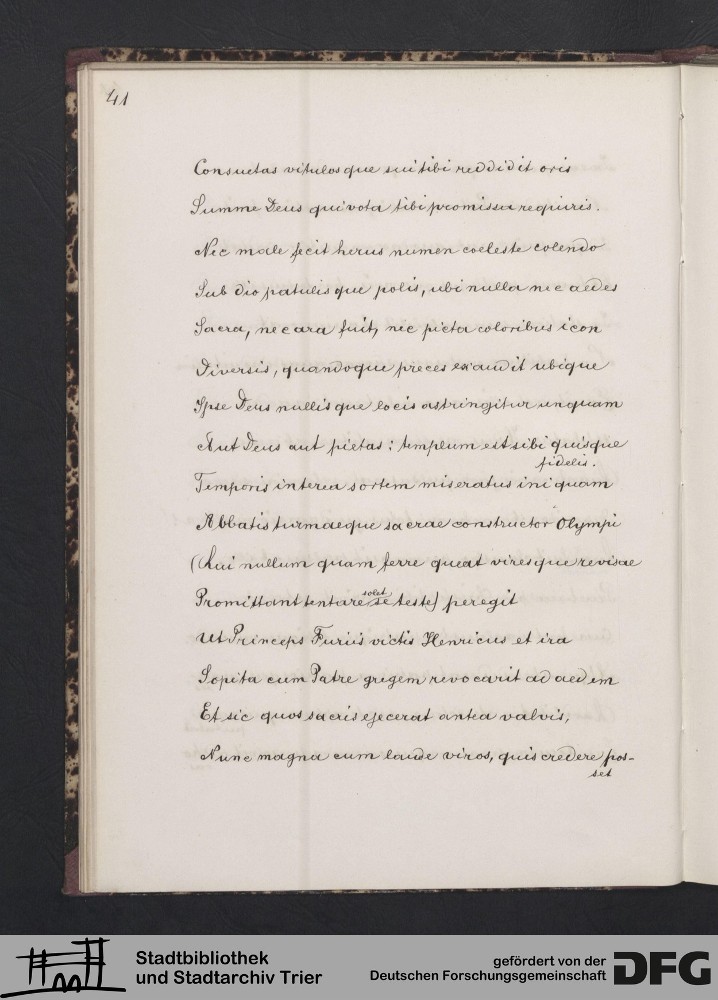 41
Consuetas vitulosque sui tibi reddidit oris
Summe Deus qui vota tibi promissa requiris.
Nec male fecit herus numen coeleste colendo
Sub dio patulisque polis, ubi nulla nec aedes
Sacra, nec ara fuit, nec picta coloribus icon
Diversis, quandoque preces exaudit ubique
Ipse Deus nullisque locis astringitur unquam
Aut Deus aut pietas: templum est sibi quisque
fidelis.
Temporis interea sortem miseratus iniquam
Abbatis turmaeque sacrae constructor Olympi
(Qui nullum quam ferre queat viresque
Promittant tentare solet se teste) peregit
Ut Princeps Furiis victis Henricus et ira
Sopita cum Patre gregem revocarit ad aedem
Et sic quos sacris ejecerat antea valvis,
Nunc magna cum laude viros, quis credere pos-
set
Stadtbibliothek
und Stadtarchiv Trier
gefördert von der
Deutschen Forschungsgemeinschaft
DFG